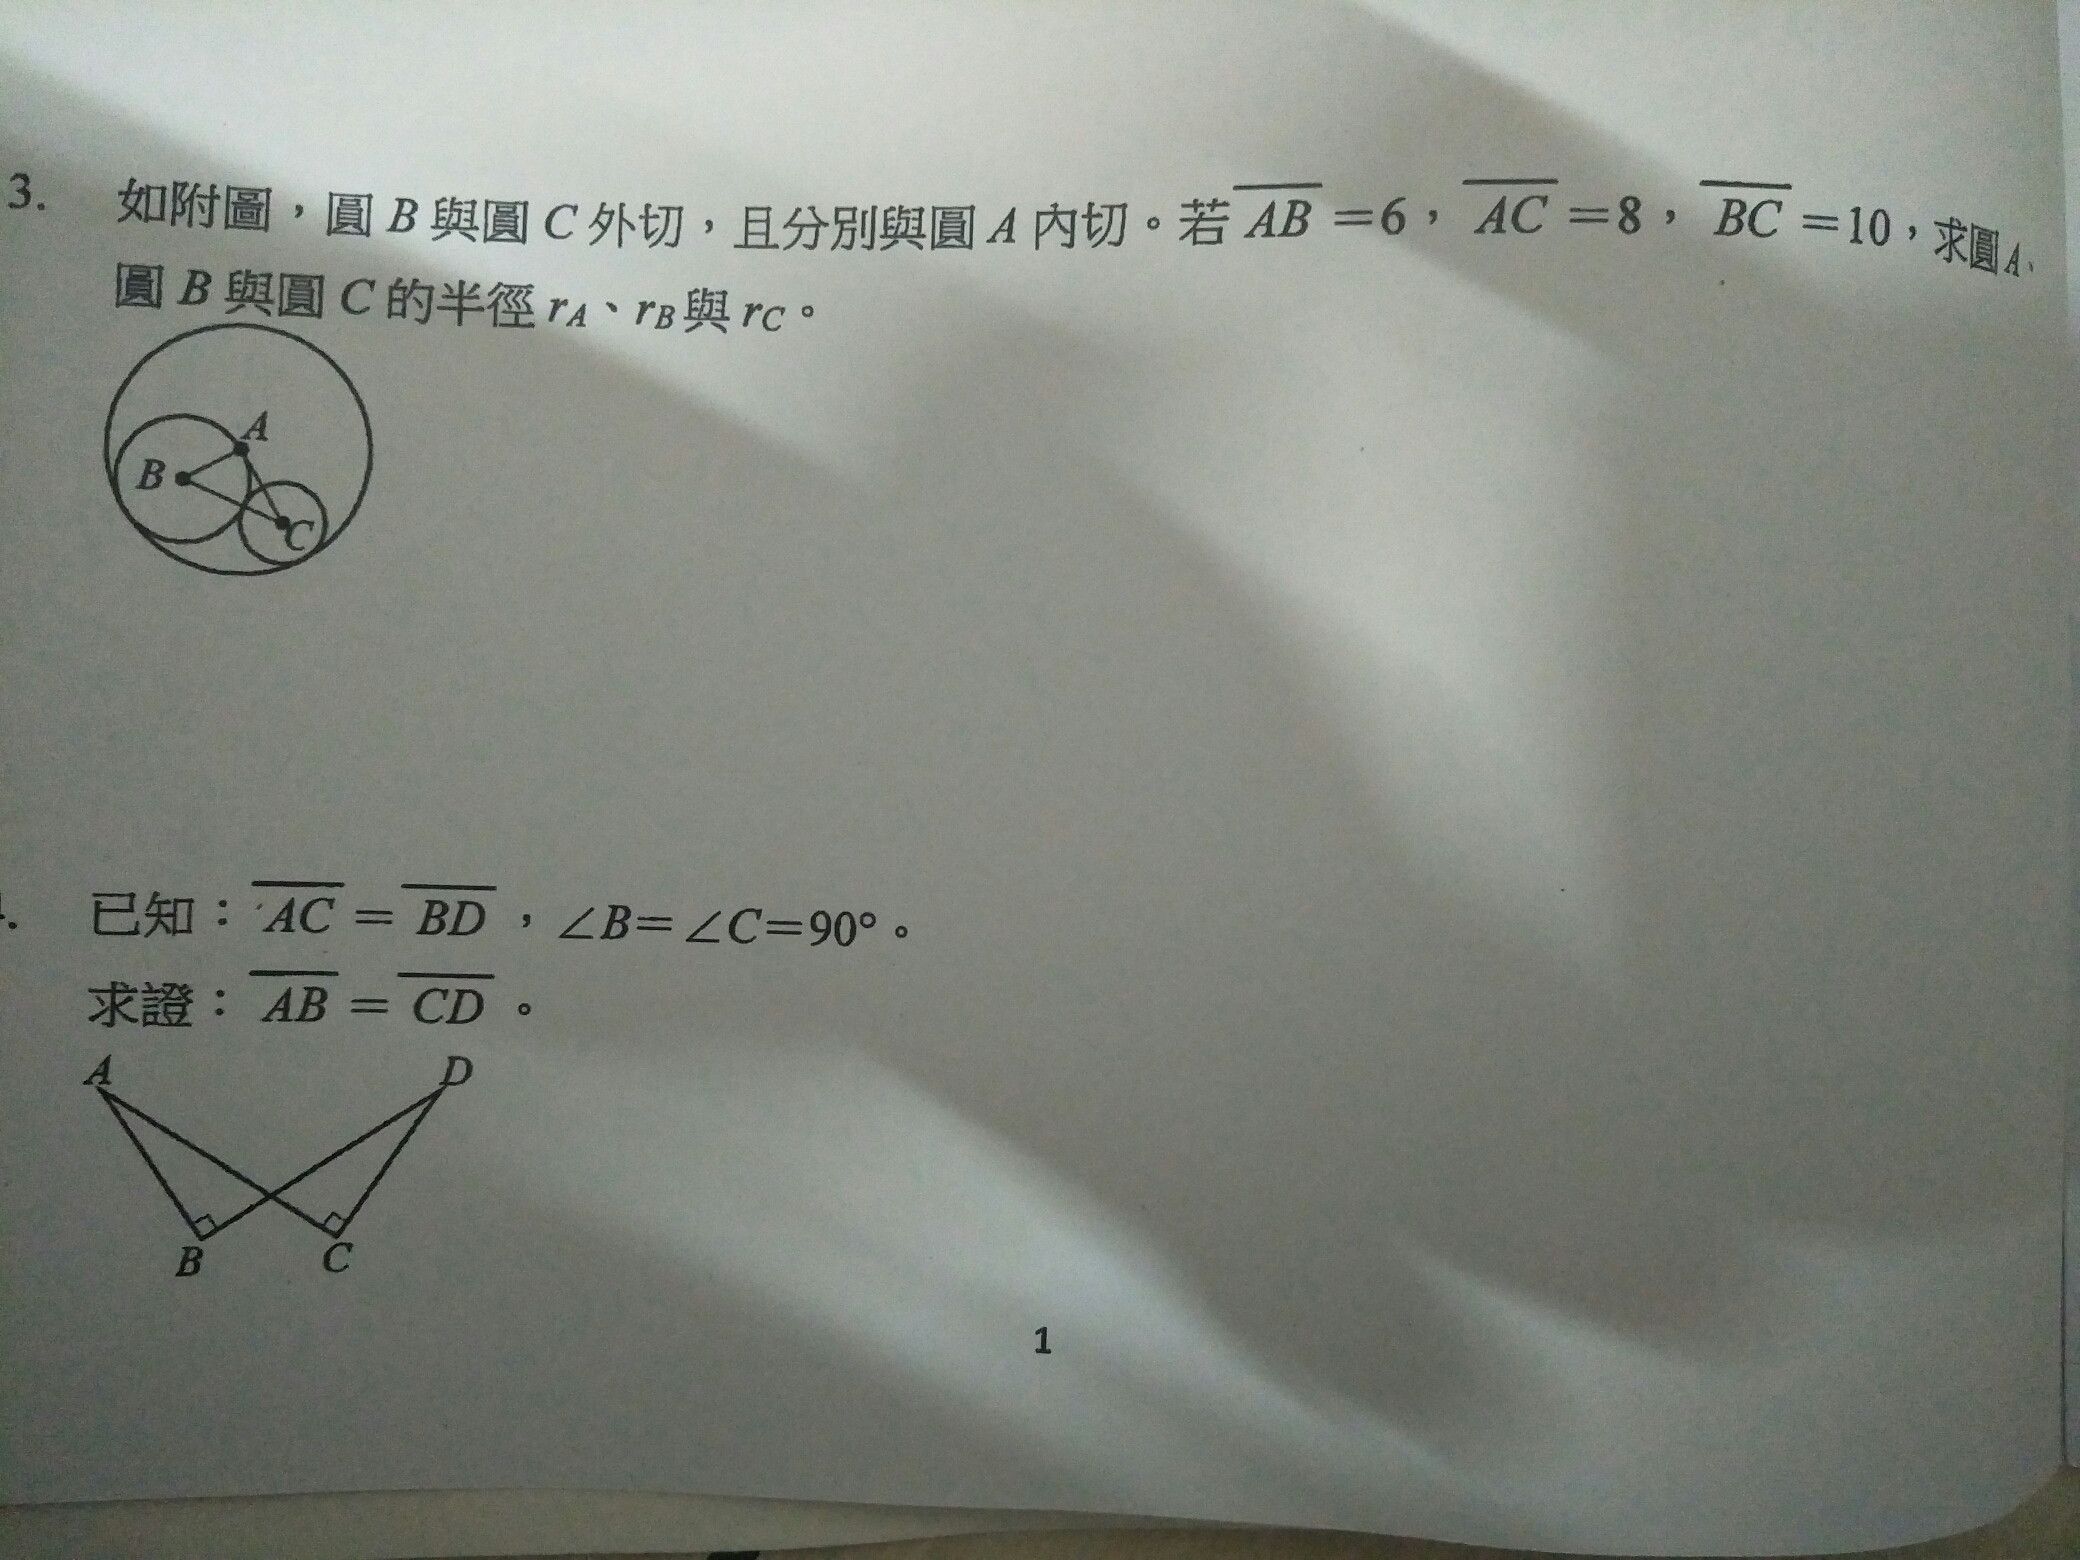 3. 如附圖，圓 B 與圓 C 外切，且分別與圓 A 內切。若 \overline{AB} =6，\overline{AC} =8，\overline{BC} =10，求圓 A、
圓 B 與圓 C 的半徑 r_A、r_B 與 r_C。
A
B
C
已知：\overline{AC} = \overline{BD}，∠B=∠C=90°。
求證：\overline{AB} = \overline{CD}。
A D
B C
1